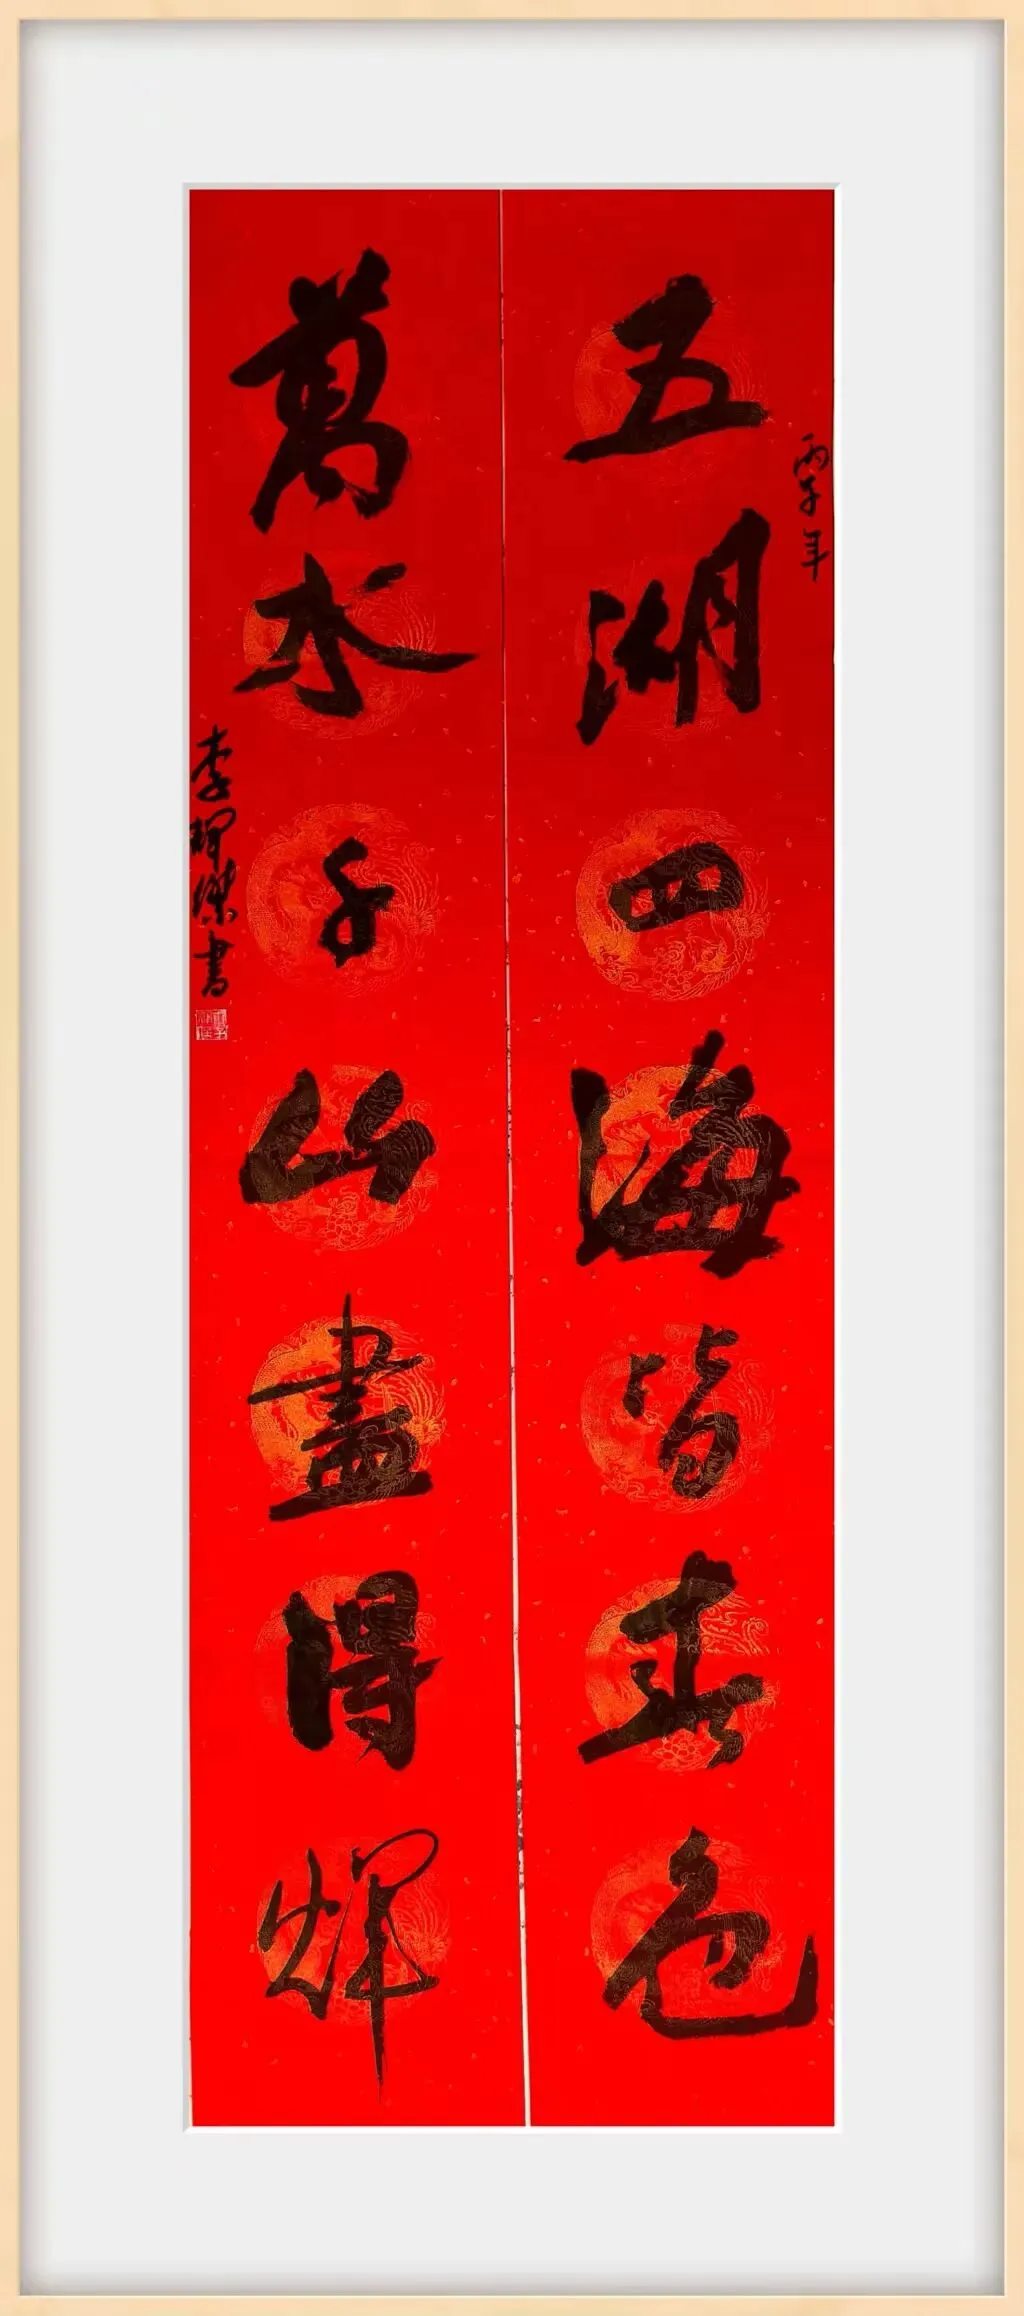 丙午年
五湖四海皆春色
萬水千山盡得輝
李耀傑書